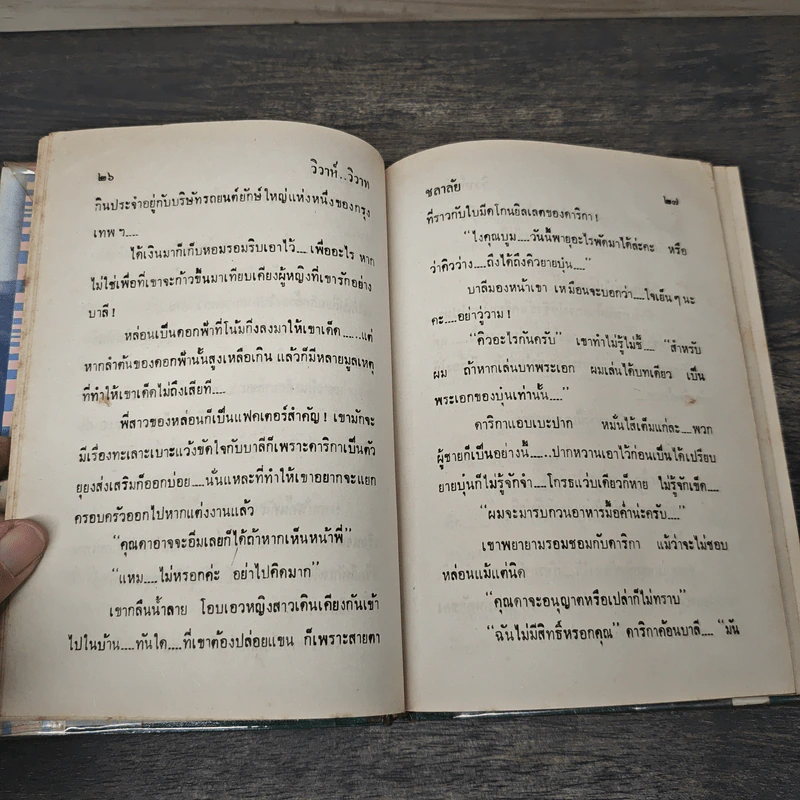 ๒๖
วิวาห์..วิวาท
กินประจำอยู่กับบริษัทรถยนต์ยักษ์ใหญ่แห่งหนึ่งของกรุง
เทพ ฯ....
ได้เงินมาก็เก็บหอมรอมริบเอาไว้.... เพื่ออะไร หาก
ไม่ใช่เพื่อที่เขาจะก้าวขึ้นมาเทียบเคียงผู้หญิงที่เขารักอย่าง
บาลี!
หล่อนเป็นดอกฟ้าที่โน้มกิ่งลงมาให้เขาเด็ด......แต่
หากลำต้นของดอกฟ้านั้นสูงเหลือเกิน แล้วก็มีหลายมูลเหตุ
ที่ทำให้เขาเด็ดไม่ถึงเสียที....
พี่สาวของหล่อนก็เป็นแฟคเตอร์สำคัญ! เขามักจะ
มีเรื่องทะเลาะเบาะแว้งขัดใจกับบาลีก็เพราะดาริกาเป็นตัว
ยุยงส่งเสริมก็ออกบ่อย....นั่นแหละที่ทำให้เขาอยากจะแยก
ครอบครัวออกไปหากแต่งงานแล้ว
"คุณดาอาจจะอิ่มเลยก็ได้ถ้าหากเห็นหน้าพี่"
"แหม....ไม่หรอกค่ะ อย่าไปคิดมาก"
เขากลืนน้ำลาย โอบเอวหญิงสาวเดินเคียงกันเข้า
ไปในบ้าน....ทันใด....ที่เขาต้องปล่อยแขน ก็เพราะสายตา
ชลาลัย
๒๗
ที่ราวกับใบมีดโกนยิลเลตของดาริกา!
"ไงคุณบุม....วันนี้พายุอะไรพัดมาได้ล่ะคะ หรือ
ว่าคิวว่าง....ถึงได้ถึงคิวยายบุ๋น...."
บาลีมองหน้าเขา เหมือนจะบอกว่า....ใจเย็นๆนะ
คะ....อย่าวู่วาม!
"คิวอะไรกันครับ" เขาทำไม่รู้ไม่ชี้.... "สำหรับ
ผม ถ้าหากเล่นบทพระเอก ผมเล่นได้บทเดียว เป็น
พระเอกของบุ๋นเท่านั้น...."
ดาริกาแอบเบะปาก หมั่นไส้เต็มแก่ละ....พวก
ผู้ชายก็เป็นอย่างนี้......ปากหวานเอาไว้ก่อนเป็นได้เปรียบ
ยายบุ๋นก็ไม่รู้จักจำ....โกรธแว่บเดียวก็หาย ไม่รู้จักเข็ด....
"ผมจะมารบกวนอาหารมื้อค่ำน่ะครับ...."
เขาพยายามรอมชอมกับดาริกา แม้ว่าจะไม่ชอบ
หล่อนแม้แต่นิด
"คุณดาจะอนุญาตหรือเปล่าก็ไม่ทราบ"
"ฉันไม่มีสิทธิ์หรอกคุณ" ดาริกาค้อนบาลี.... "มัน